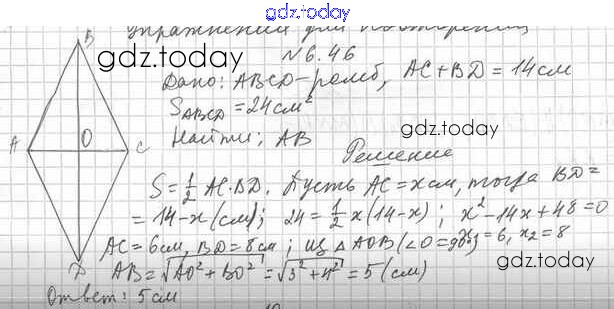 gdz.today
Упражнения для повторения
gdz.today
N 6.46
Дано: ABCD-ромб, AC+BD=14см
S_ABCD=24см²
gdz.today
Найти: AB
Решение
B
A
O
C
D
S=½ AC·BD. Пусть AC=x см, тогда BD=
=14-x (см); 24=½x(14-x); x²-14x+48=0
x₁=6, x₂=8
AC=6см, BD=8см; из △AOB (∠O=90°)
AB=√AO²+BO²=√3²+4²=5 (см)
gdz.today
Ответ: 5см